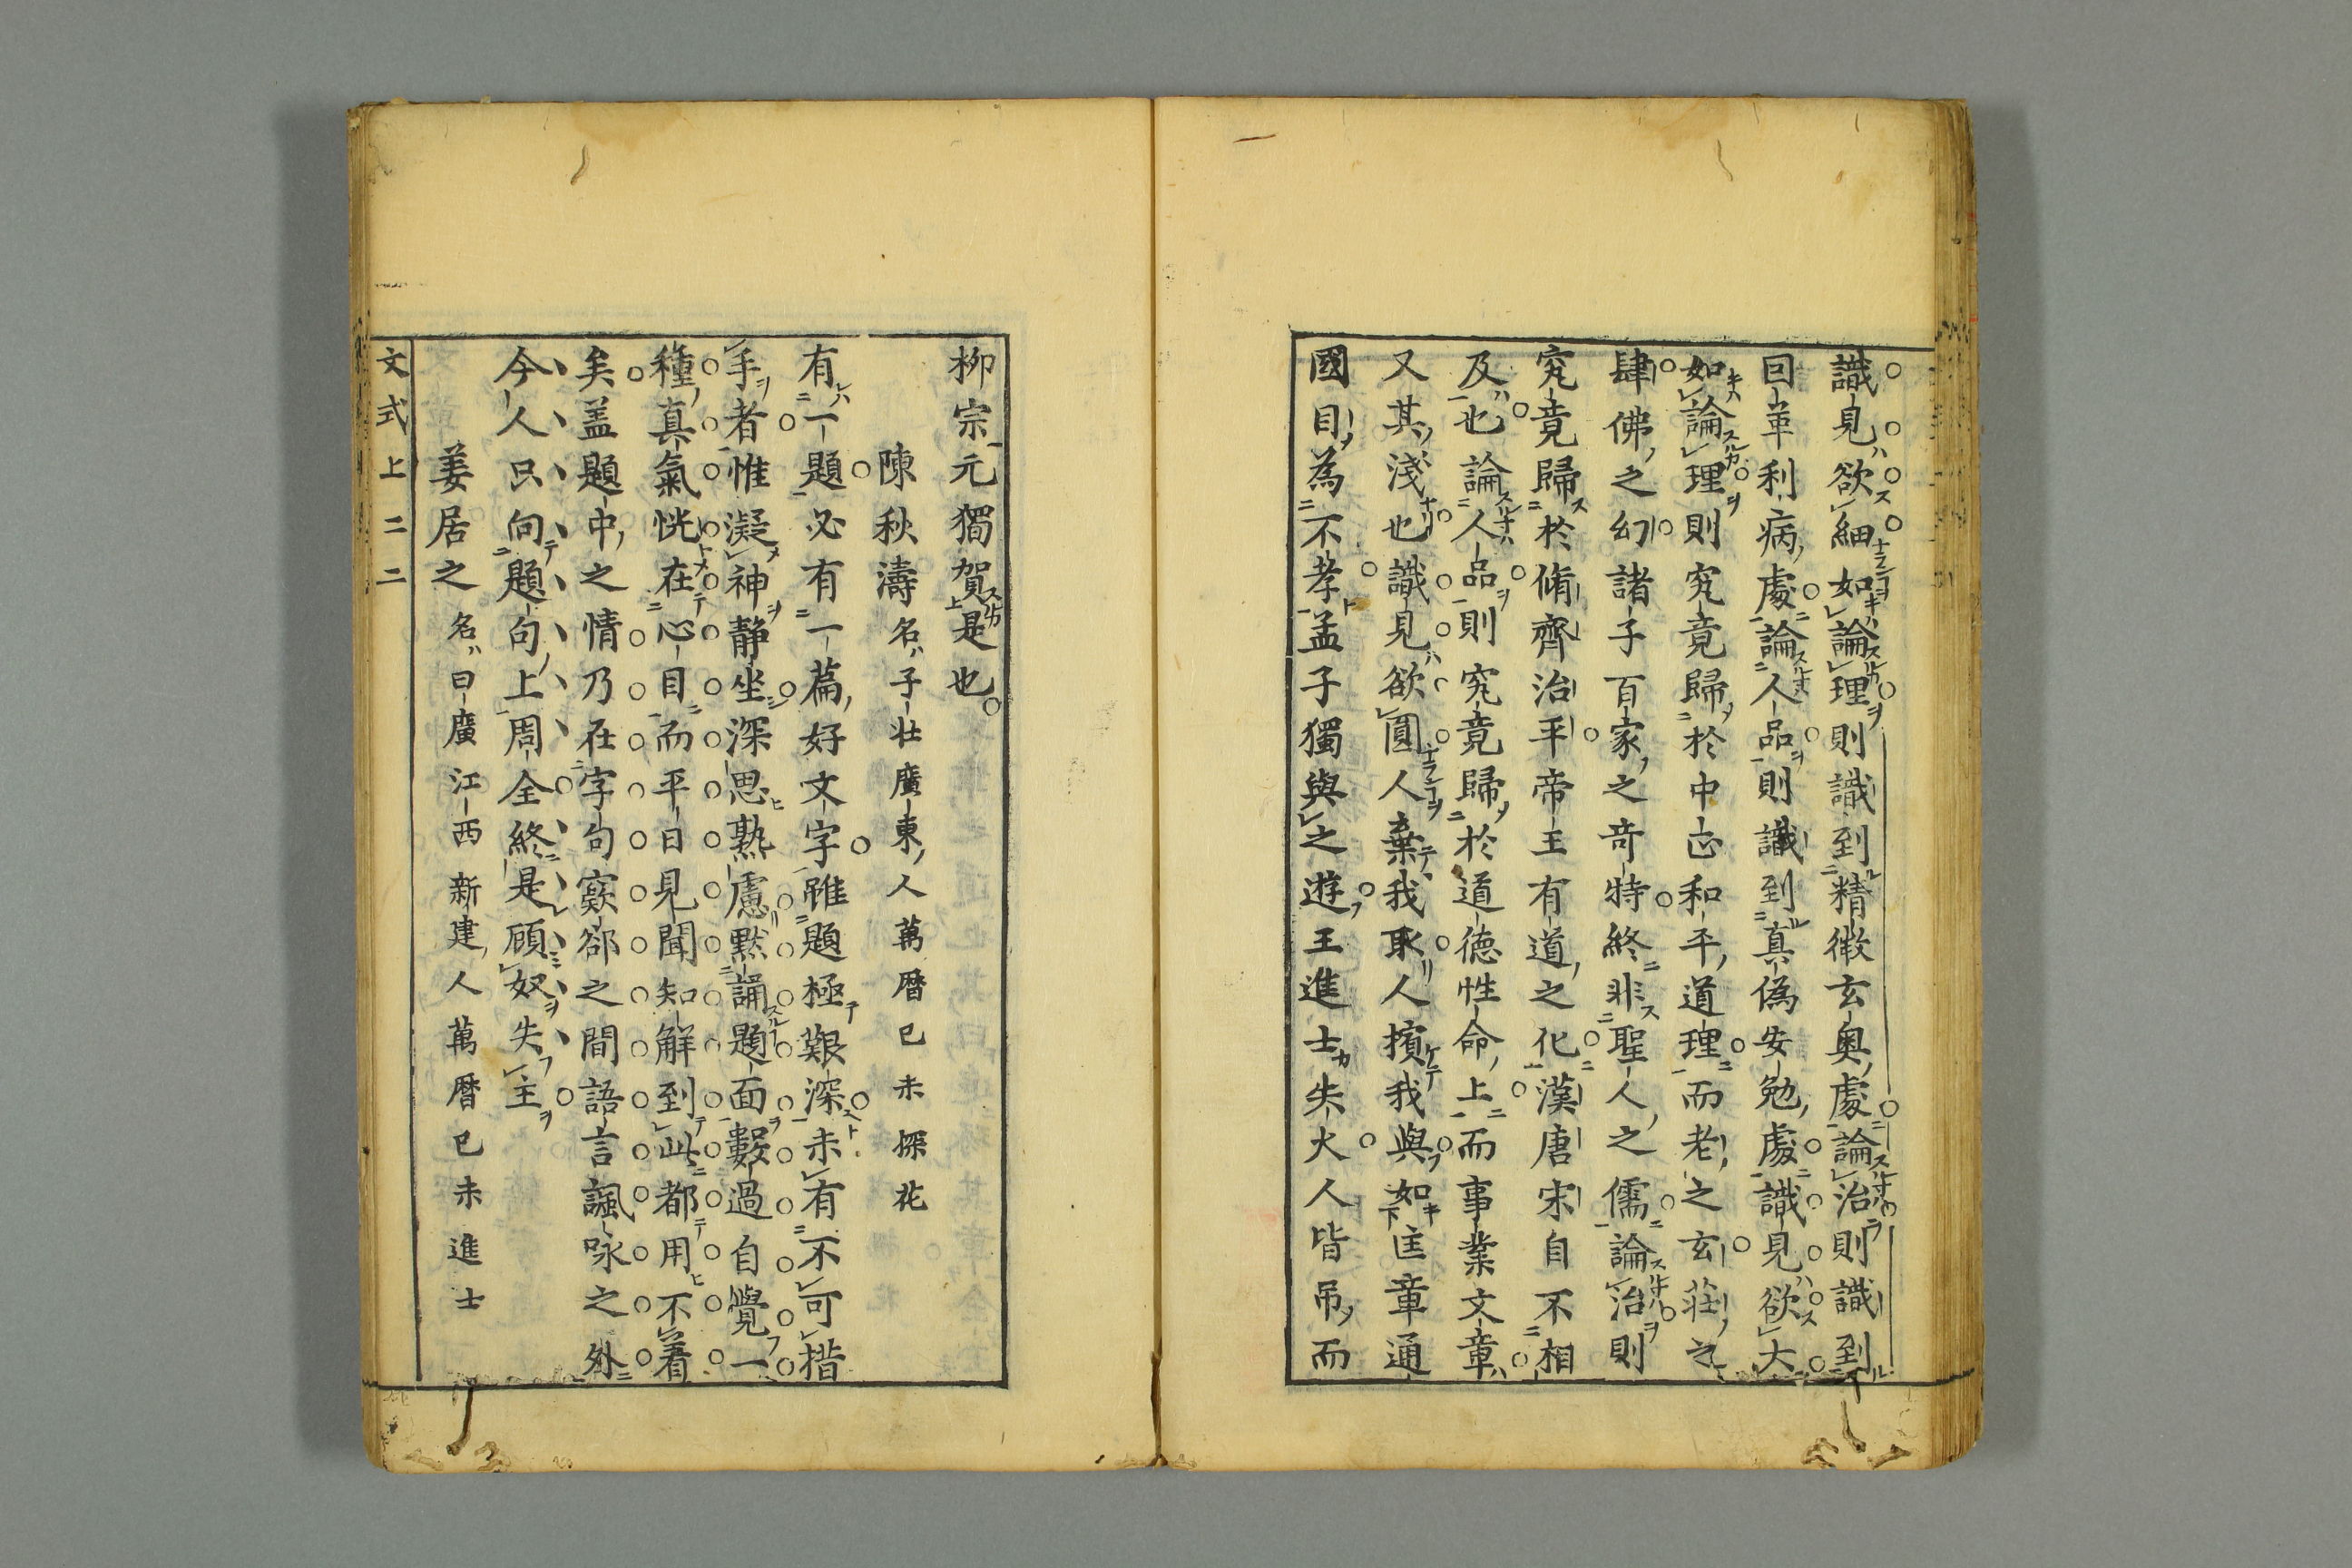 識見欲細如論理則識到精微玄奥處論治則識到
因革利病處論人品則識到真偽安勉處識見欲大
如論理則究竟歸於中正和平道理而老之玄莊之
肆佛之幻諸子百家之竒特終非聖人之儒論治則
究竟歸於脩齊治平帝王有道之化漢唐宋自不相
及也論人品則究竟歸於道德性命上而事業文章
又其淺也識見欲圓人棄我取人擯我與如匡章通
國目為不孝孟子獨與之遊王進士失火人皆吊而
柳宗元獨賀是也
陳秋濤名子壮廣東人萬曆己未探花
有一題必有一篇好文字雖題極艱深未有不可措
手者惟凝神静坐深思熟慮黙誦題面數過自覺一
種真氣恍在心目而平日見聞知解到此都用不着
矣盖題中之情乃在字句窾郤之間語言諷咏之外
今人只向題句上周全終是顧奴失主
姜居之名曰廣江西新建人萬曆己未進士
文式上二 二